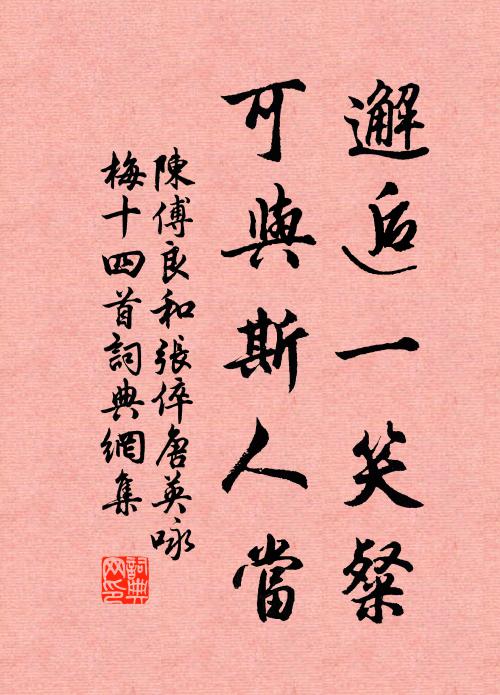 邂逅一笑粲
可與斯人當
陳傅良和張倅唐英咏
梅十四首詞典網集
詞典
网印